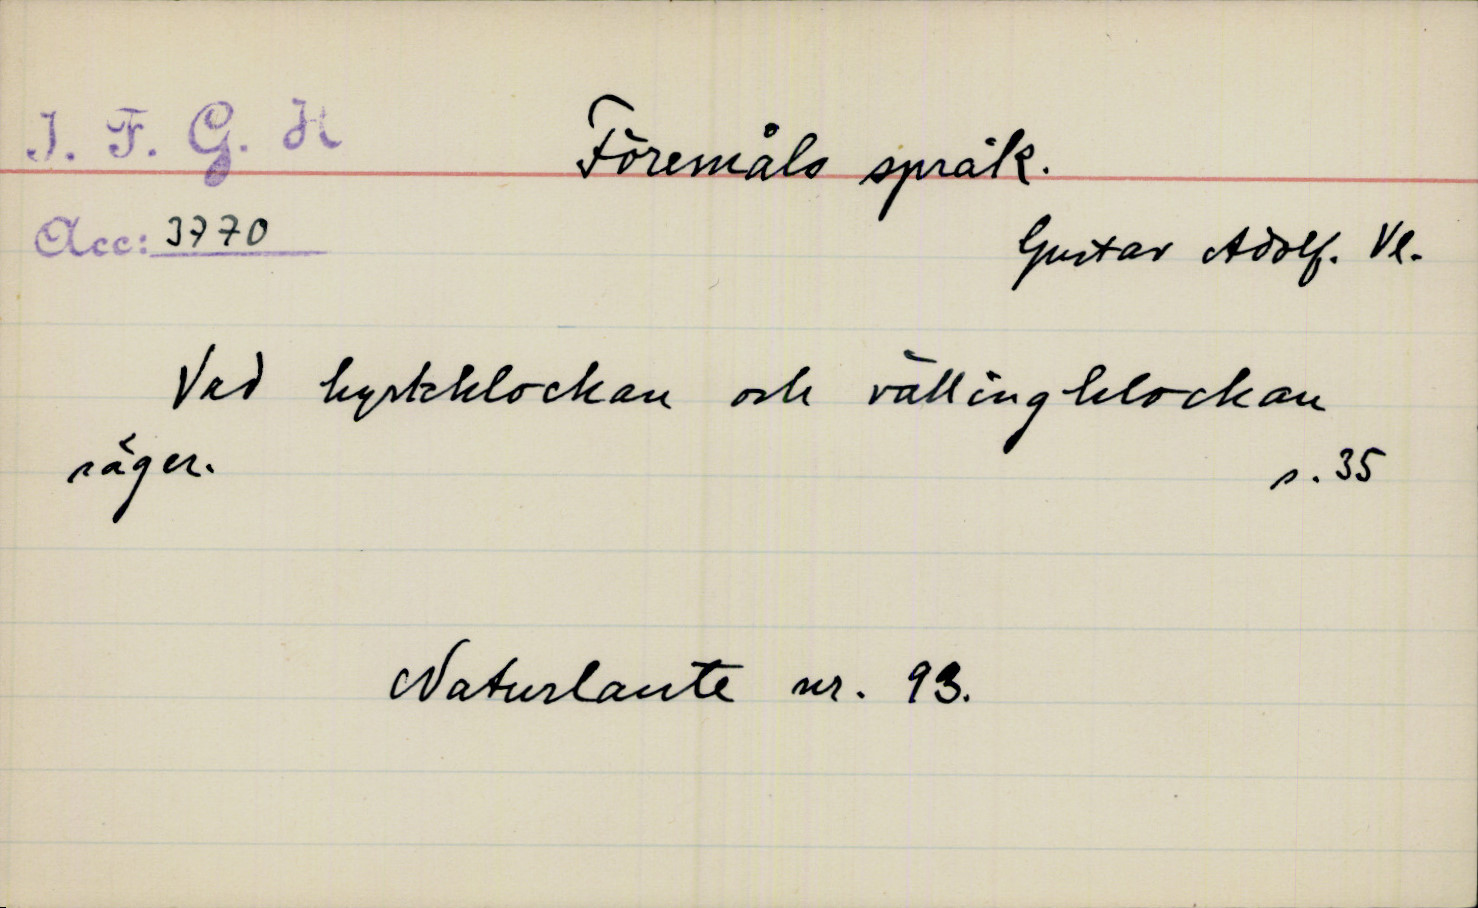 I. F. G. H
Föremåls språk.
Acc: 3770
Gustav Adolf. Vl.
Vad kyrkklockan och vällingklockan
säger. s. 35
Naturlaute nr. 93.